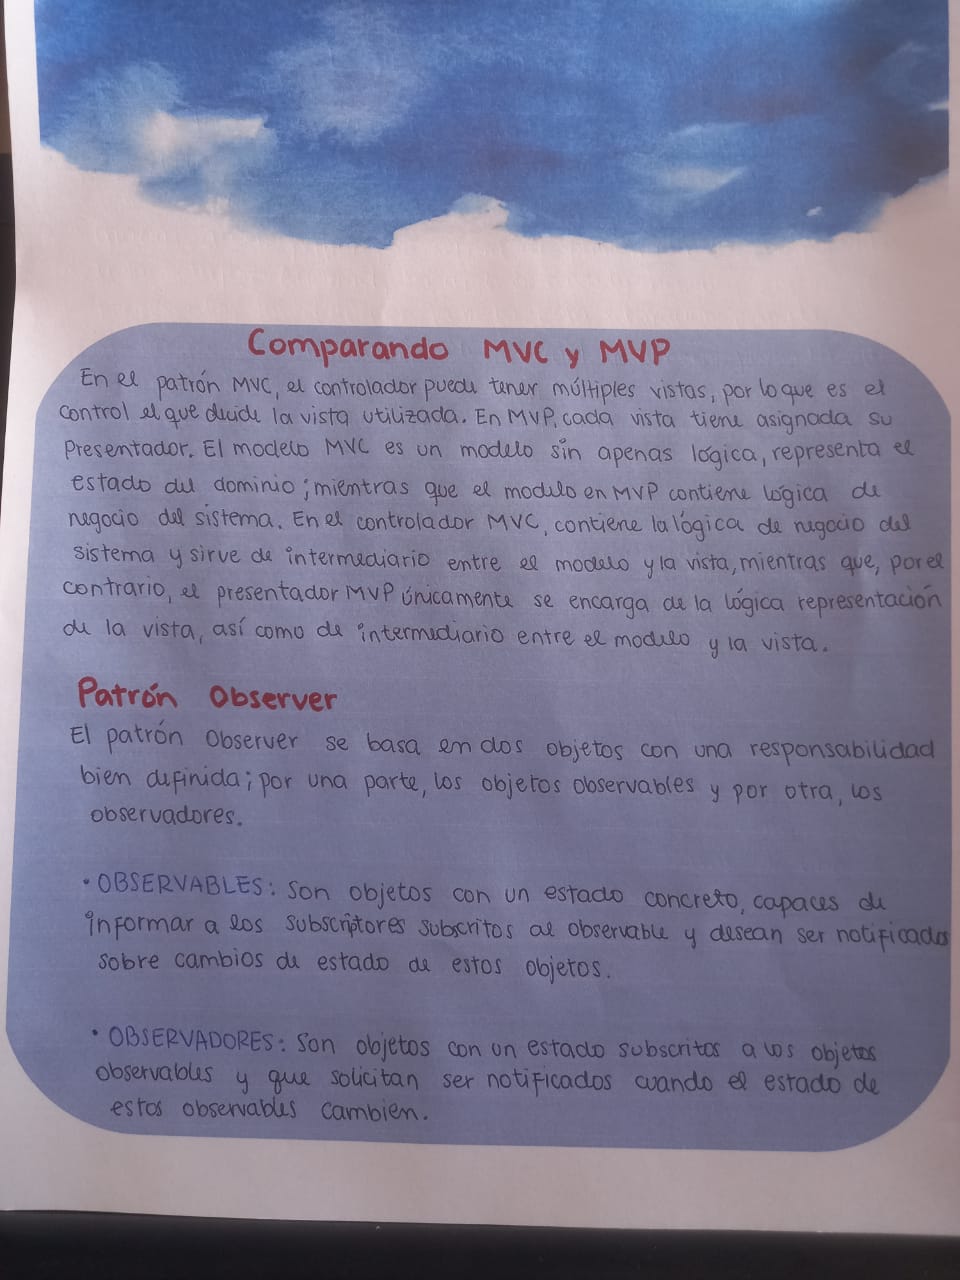 Comparando MVC y MVP
En el patrón MVC, el controlador puede tener múltiples vistas, por lo que es el
control el que decide la vista utilizada. En MVP, cada vista tiene asignada su
Presentador. El modelo MVC es un modelo sin apenas lógica, representa el
estado del dominio; mientras que el modulo en MVP contiene lógica de
negocio del sistema. En el controlador MVC, contiene la lógica de negocio del
sistema y sirve de intermediario entre el modelo y la vista, mientras que, por el
contrario, el presentador MVP únicamente se encarga de la lógica representación
de la vista, así como de intermediario entre el modelo y la vista.
Patrón Observer
El patrón Observer se basa en dos objetos con una responsabilidad
bien definida; por una parte, los objetos observables y por otra, los
observadores.
• OBSERVABLES: Son objetos con un estado concreto, capaces de
informar a los subscriptores subscritos al observable y desean ser notificados
sobre cambios de estado de estos objetos.
• OBSERVADORES: Son objetos con un estado subscritos a los objetos
observables y que solicitan ser notificados cuando el estado de
estos observables cambien.